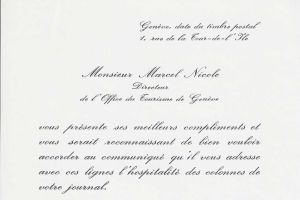 Genève, date du timbre postal
1, rue de la Tour-de-l'Ile
Monsieur Marcel Nicole
Directeur
de l'Office du Tourisme de Genève
vous présente ses meilleurs compliments et
vous serait reconnaissant de bien vouloir
accorder au communiqué qu'il vous adresse
avec ces lignes l'hospitalité des colonnes de
votre journal.